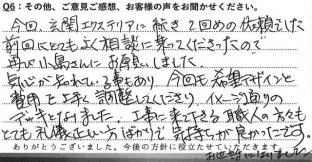 Q6：その他、ご意見ご感想、お客様の声をお聞かせください。
今回、玄関エクステリアに続き２回めの依頼でした
前回とてもよく相談に乗ってくださったので
再び小島さんにお願いしました。
気心が知れている事もあり、今回も希望デザインと
費用を上手く調整してくださり、イメージ通りの
デッキとなりました。工事に来て下さる職人の方々も
とても礼儀正しい方ばかりで気持ちが良かったです。
ありがとうございました。今後の方針に役立たせていただきます。
お世話になりました